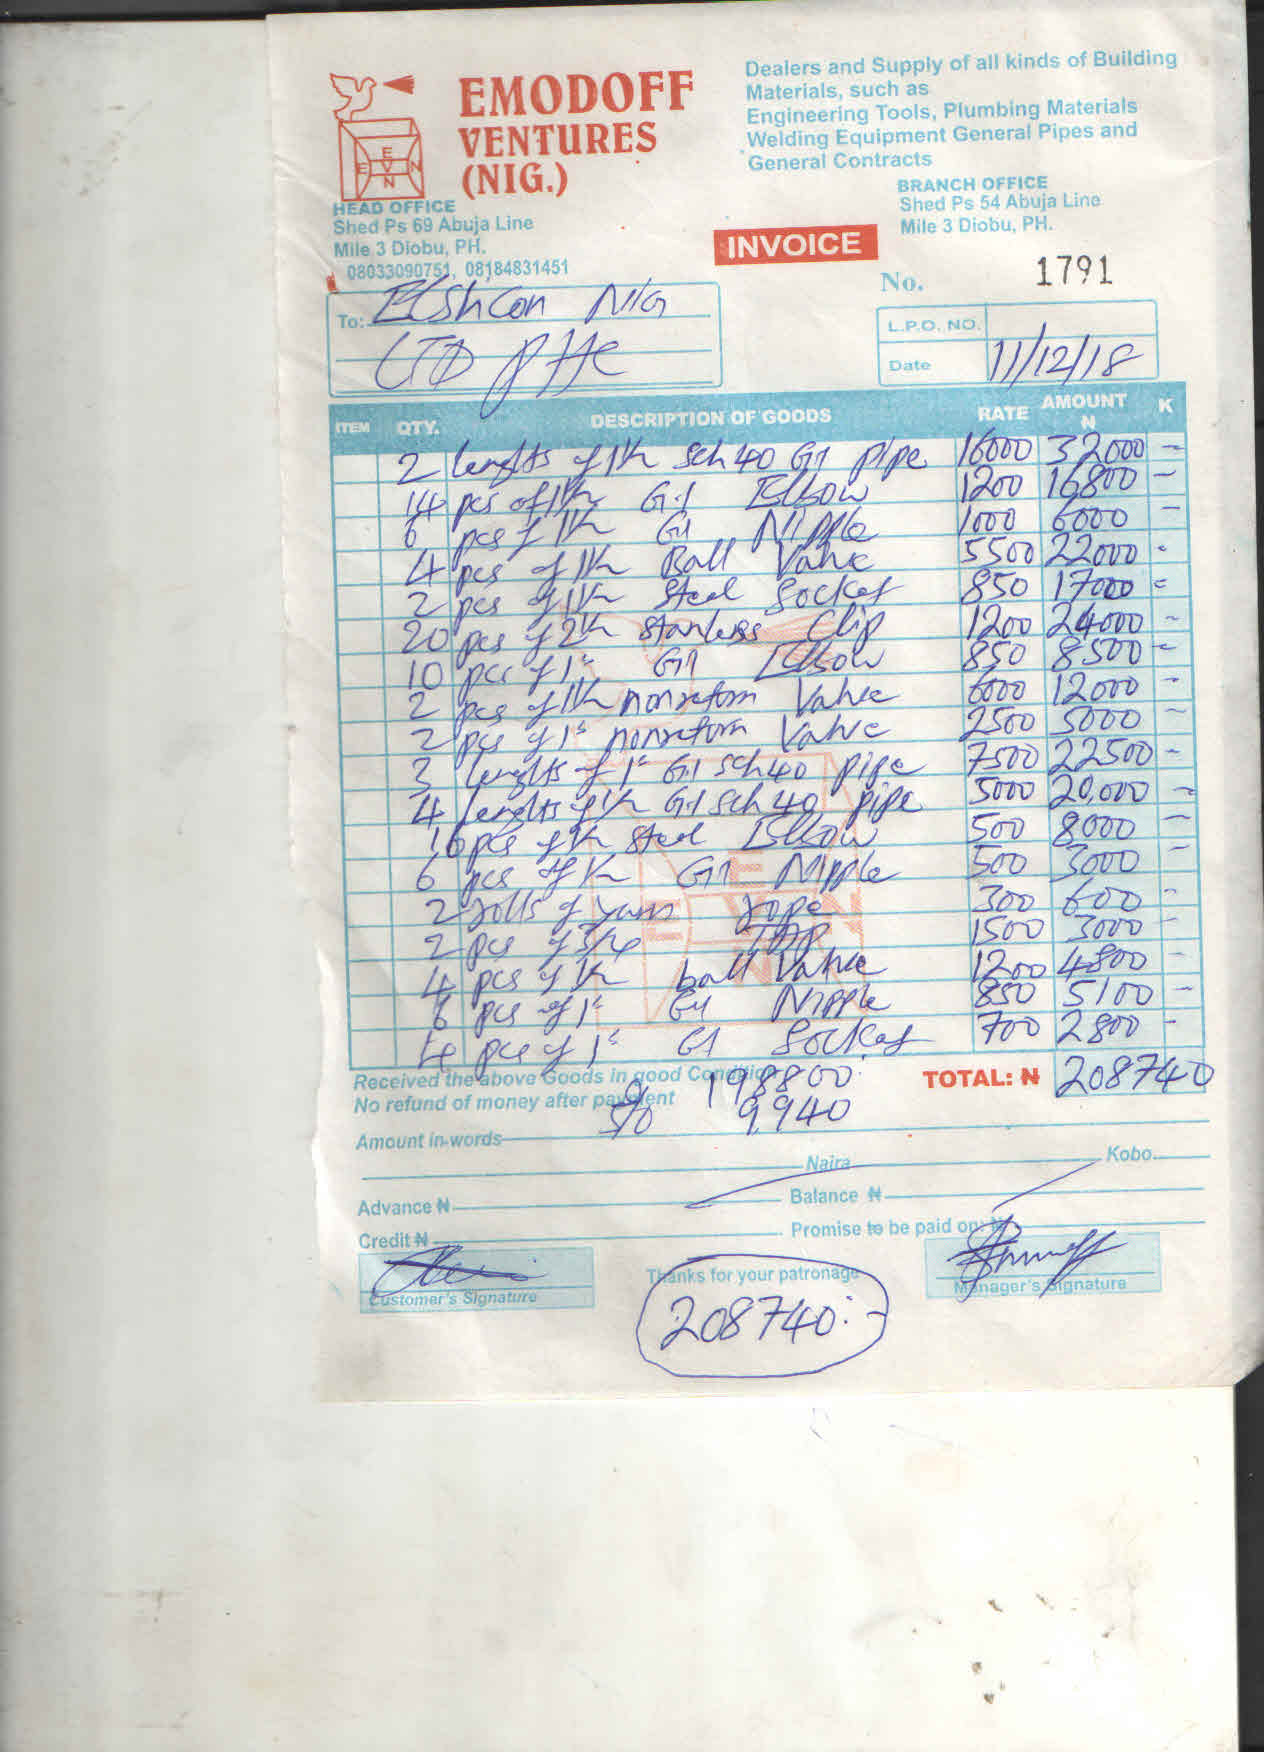 EMODOFF
VENTURES
(NIG.)
E
E V N
N
Dealers and Supply of all kinds of Building
Materials, such as
Engineering Tools, Plumbing Materials
Welding Equipment General Pipes and
General Contracts
HEAD OFFICE
Shed Ps 69 Abuja Line
Mile 3 Diobu, PH.
08033090751, 08184831451
BRANCH OFFICE
Shed Ps 54 Abuja Line
Mile 3 Diobu, PH.
INVOICE
No. 1791
To: NIG
LTD PHC
L.P.O. NO.
Date 11/12/18
ITEM QTY. DESCRIPTION OF GOODS RATE AMOUNT N K
2 lenghts of 1½ Sch 40 G1 pipe 16000 32000 -
14 pcs of 1½ G1 Elbow 1200 16800 -
6 pcs of 1½ G1 Nipple 1000 6000 -
4 pcs of 1½ Ball Valve 5500 22000 -
2 pcs of 1½ Steel Socket 850 17000 =
20 pcs of 2½ Stanless Clip 1200 24000 -
10 pcs of 1" G1 Elbow 850 8500 =
2 pcs of 1½ nonreturn Valve 6000 12000 -
2 pcs of 1" nonreturn Valve 2500 5000 -
3 lenghts of 1" G1 Sch 40 pipe 7500 22500 -
4 lenghts of ½ G1 Sch 40 pipe 5000 20,000 -
16 pcs of ½ Steel Elbow 500 8000 -
6 pcs of ½ G1 Nipple 500 3000 -
2 rolls of yarn rope 300 600 -
2 pcs of 3/4 Tap 1500 3000 -
4 pcs of ½ ball Valve 1200 4800 -
6 pcs of 1" G1 Nipple 850 5100 -
4 pcs of 1" G1 Socket 700 2800 -
Received the above Goods in good Condition 198800: TOTAL: N 208740
No refund of money after payment 5% 9,940
Amount in words
Naira Kobo
Advance N Balance N
Credit N Promise to be paid on: N
Customer's Signature Thanks for your patronage Manager's Signature
208740:-